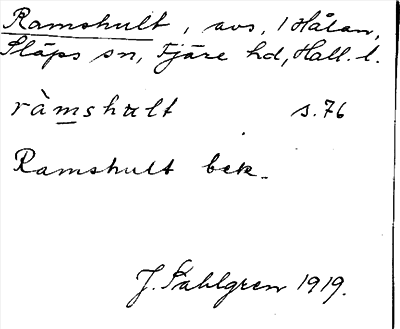 Ramshult, avs. i Hålan,
Släps sn, Fjäre hd, Hall. l.
ràmshult s. 76
Ramshult bek.
J. Sahlgren 1919.